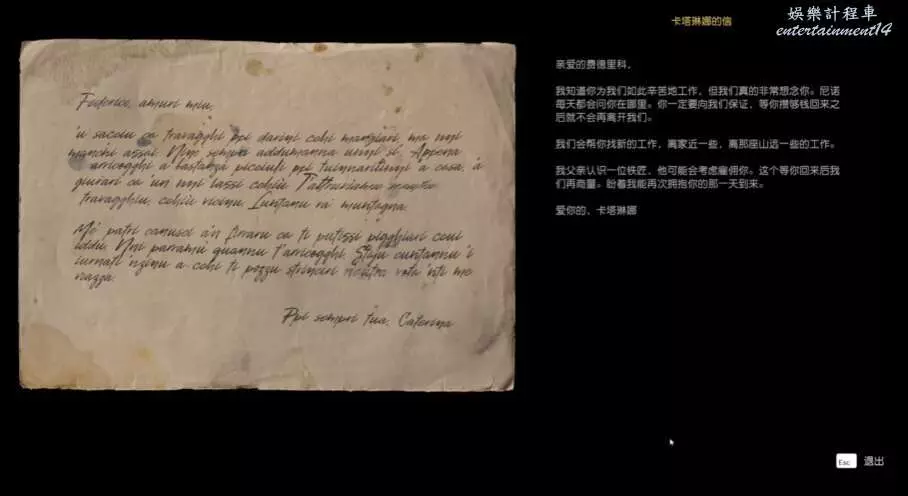 卡塔琳娜的信
娛樂計程車
entertainment14
Federico, amuri miu,
'u sacciu ca travagghi ppi darini cchi manciari, ma nni
manchi assai. sempri addumanna unni si'. Appena
arricogghi a bastanza picciuli ppi a casa, à
giurari ca 'un nni lassi cchiù. T'attruviamu
travagghiu, cchiù vicinu. Luntanu râ muntagna.
Me' patri canusci a'n firraru ca ti putissi pigghiari
iddu. Nni parramu quannu t'arricogghi. Staju cuntannu i
iurnati 'nzinu a cchi ti pozzu strinciri nautra vota 'nti me
razza.
Ppi sempri tua, Caterina
亲爱的费德里科，
我知道你为我们如此辛苦地工作，但我们真的非常想念你。尼诺
每天都会问你在哪里。你一定要向我们保证，等你攒够钱回来之
后就不会再离开我们。
我们会帮你找新的工作，离家近一些，离那座山远一些的工作。
我父亲认识一位铁匠，他可能会考虑雇佣你。这个等你回来后我
们再商量。盼着我能再次拥抱你的那一天到来。
爱你的，卡塔琳娜
Esc 退出